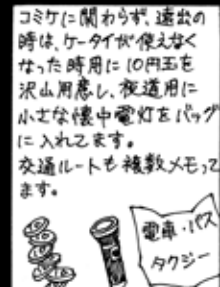 コミケに関わらず、遠出の
時は、ケータイが使えなく
なった時用に10円玉を
沢山用意し、夜道用に
小さな懐中電灯をバッグ
に入れてます。
交通ルートも複数メモって
ます。
電車・バス
タクシー